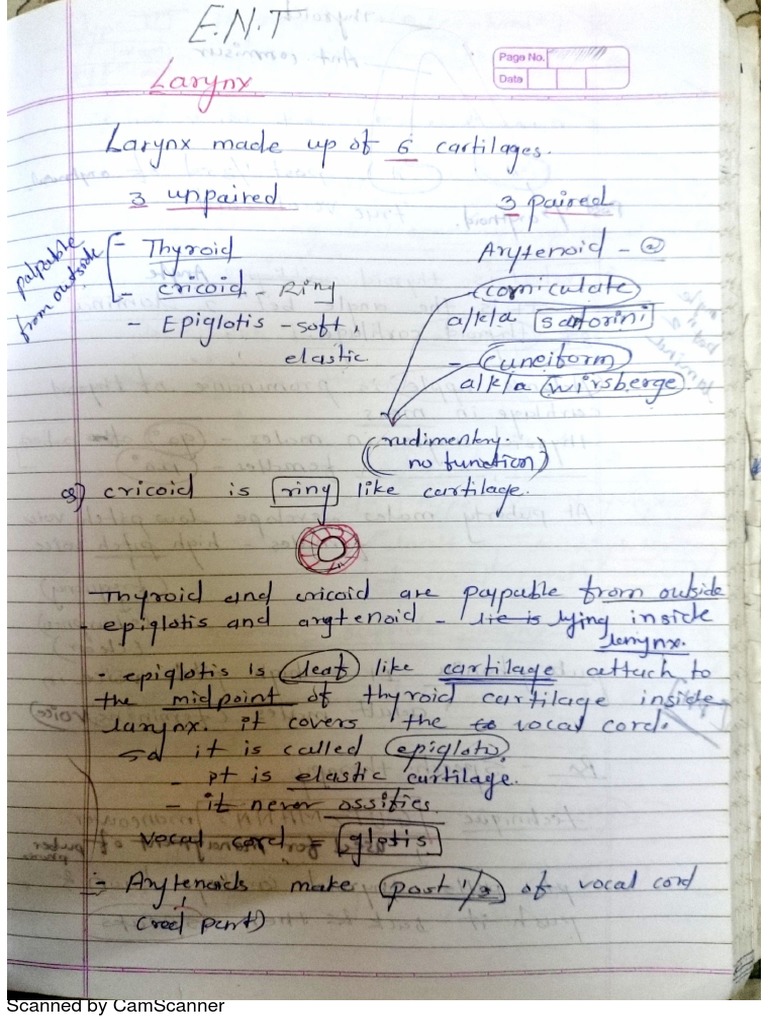 E.N.T
Page No.
Date
Larynx
Larynx made up of 6 cartilages.
3 unpaired
3 paired
palpable
from outside
- Thyroid
- cricoid - Ring
- Epiglotis - soft,
elastic
Arytenoid - @
- corniculate
a/k/a santorini
- cuneiform
a/k/a wirsberge
(rudimentry.
no function)
cricoid is ring like cartilage.
Thyroid and cricoid are paypable from outside
- epiglotis and arytenoid - lie is lying inside
larynx.
- epiglotis is leaf like cartilage attach to
the midpoint of thyroid cartilage inside
larynx. it covers the to vocal cord.
so it is called epiglotis
- pt is elastic cartilage.
- it never ossifies.
vocal cord = glotis
- Arytenoids make post 1/3 of vocal cord
(red part)
Scanned by CamScanner